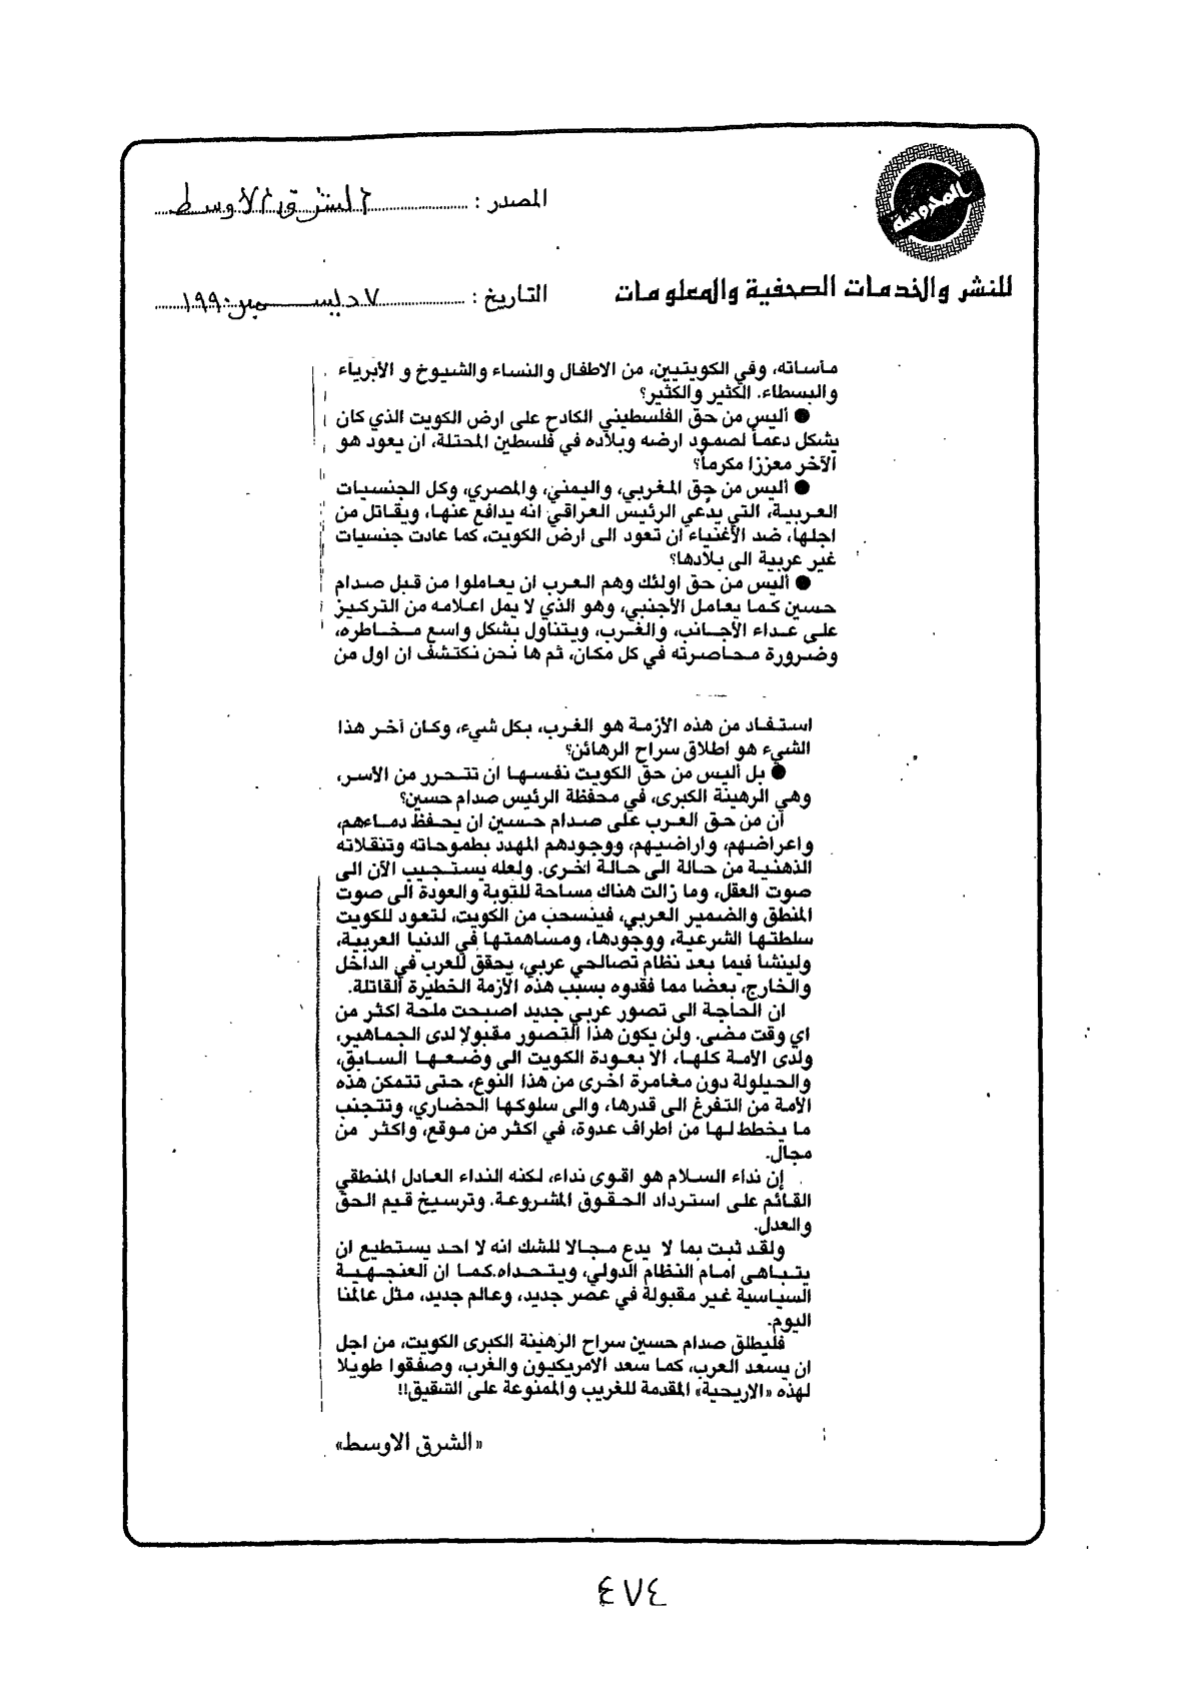 المحروسة
المصدر : الشرق الاوسط
للنشر والخدمات الصحفية والمعلومات
التاريخ : ٧ ديسمبر ١٩٩٠
مأساته، وفي الكويتيين، من الاطفال والنساء والشيوخ و الأبرياء
والبسطاء. الكثير والكثير؟
● أليس من حق الفلسطيني الكادح على ارض الكويت الذي كان
يشكل دعماً لصمود ارضه وبلاده في فلسطين المحتلة، ان يعود هو
الآخر معززا مكرماً؟
● أليس من حق المغربي، واليمني، والمصري، وكل الجنسيات
العربية، التي يدّعي الرئيس العراقي انه يدافع عنها، ويقاتل من
اجلها، ضد الأغنياء ان تعود الى ارض الكويت، كما عادت جنسيات
غير عربية الى بلادها؟
● أليس من حق اولئك وهم العرب ان يعاملوا من قبل صدام
حسين كما يعامل الأجنبي، وهو الذي لا يمل اعلامه من التركيز
على عداء الأجانب، والغرب، ويتناول بشكل واسع مخاطره،
وضرورة محاصرته في كل مكان، ثم ها نحن نكتشف ان اول من
استفاد من هذه الأزمة هو الغرب، بكل شيء، وكان آخر هذا
الشيء هو اطلاق سراح الرهائن؟
● بل أليس من حق الكويت نفسها ان تتحرر من الأسر،
وهي الرهينة الكبرى، في محفظة الرئيس صدام حسين؟
ان من حق العرب على صدام حسين ان يحفظ دماءهم،
واعراضهم، واراضيهم، ووجودهم المهدد بطموحاته وتنقلاته
الذهنية من حالة الى حالة اخرى. ولعله يستجيب الآن الى
صوت العقل، وما زالت هناك مساحة للتوبة والعودة الى صوت
المنطق والضمير العربي، فينسحب من الكويت، لتعود للكويت
سلطتها الشرعية، ووجودها، ومساهمتها في الدنيا العربية،
ولينشأ فيما بعد نظام تصالحي عربي، يحقق للعرب في الداخل
والخارج، بعضا مما فقدوه بسبب هذه الأزمة الخطيرة القاتلة.
ان الحاجة الى تصور عربي جديد اصبحت ملحة اكثر من
اي وقت مضى. ولن يكون هذا التصور مقبولا لدى الجماهير،
ولدى الأمة كلها، الا بعودة الكويت الى وضعها السابق،
والحيلولة دون مغامرة اخرى من هذا النوع، حتى تتمكن هذه
الأمة من التفرغ الى قدرها، والى سلوكها الحضاري، وتتجنب
ما يخطط لها من اطراف عدوة، في اكثر من موقع، واكثر من
مجال.
إن نداء السلام هو اقوى نداء، لكنه النداء العادل المنطقي
القائم على استرداد الحقوق المشروعة. وترسيخ قيم الحق
والعدل.
ولقد ثبت بما لا يدع مجالا للشك انه لا احد يستطيع ان
يتباهى امام النظام الدولي، ويتحداه.كما ان العنجهية
السياسية غير مقبولة في عصر جديد، وعالم جديد، مثل عالمنا
اليوم.
فليطلق صدام حسين سراح الرهينة الكبرى الكويت، من اجل
ان يسعد العرب، كما سعد الامريكيون والغرب، وصفقوا طويلا
لهذه «الاريحية» المقدمة للغريب والممنوعة على الشقيق!!
«الشرق الاوسط»
٤٧٤